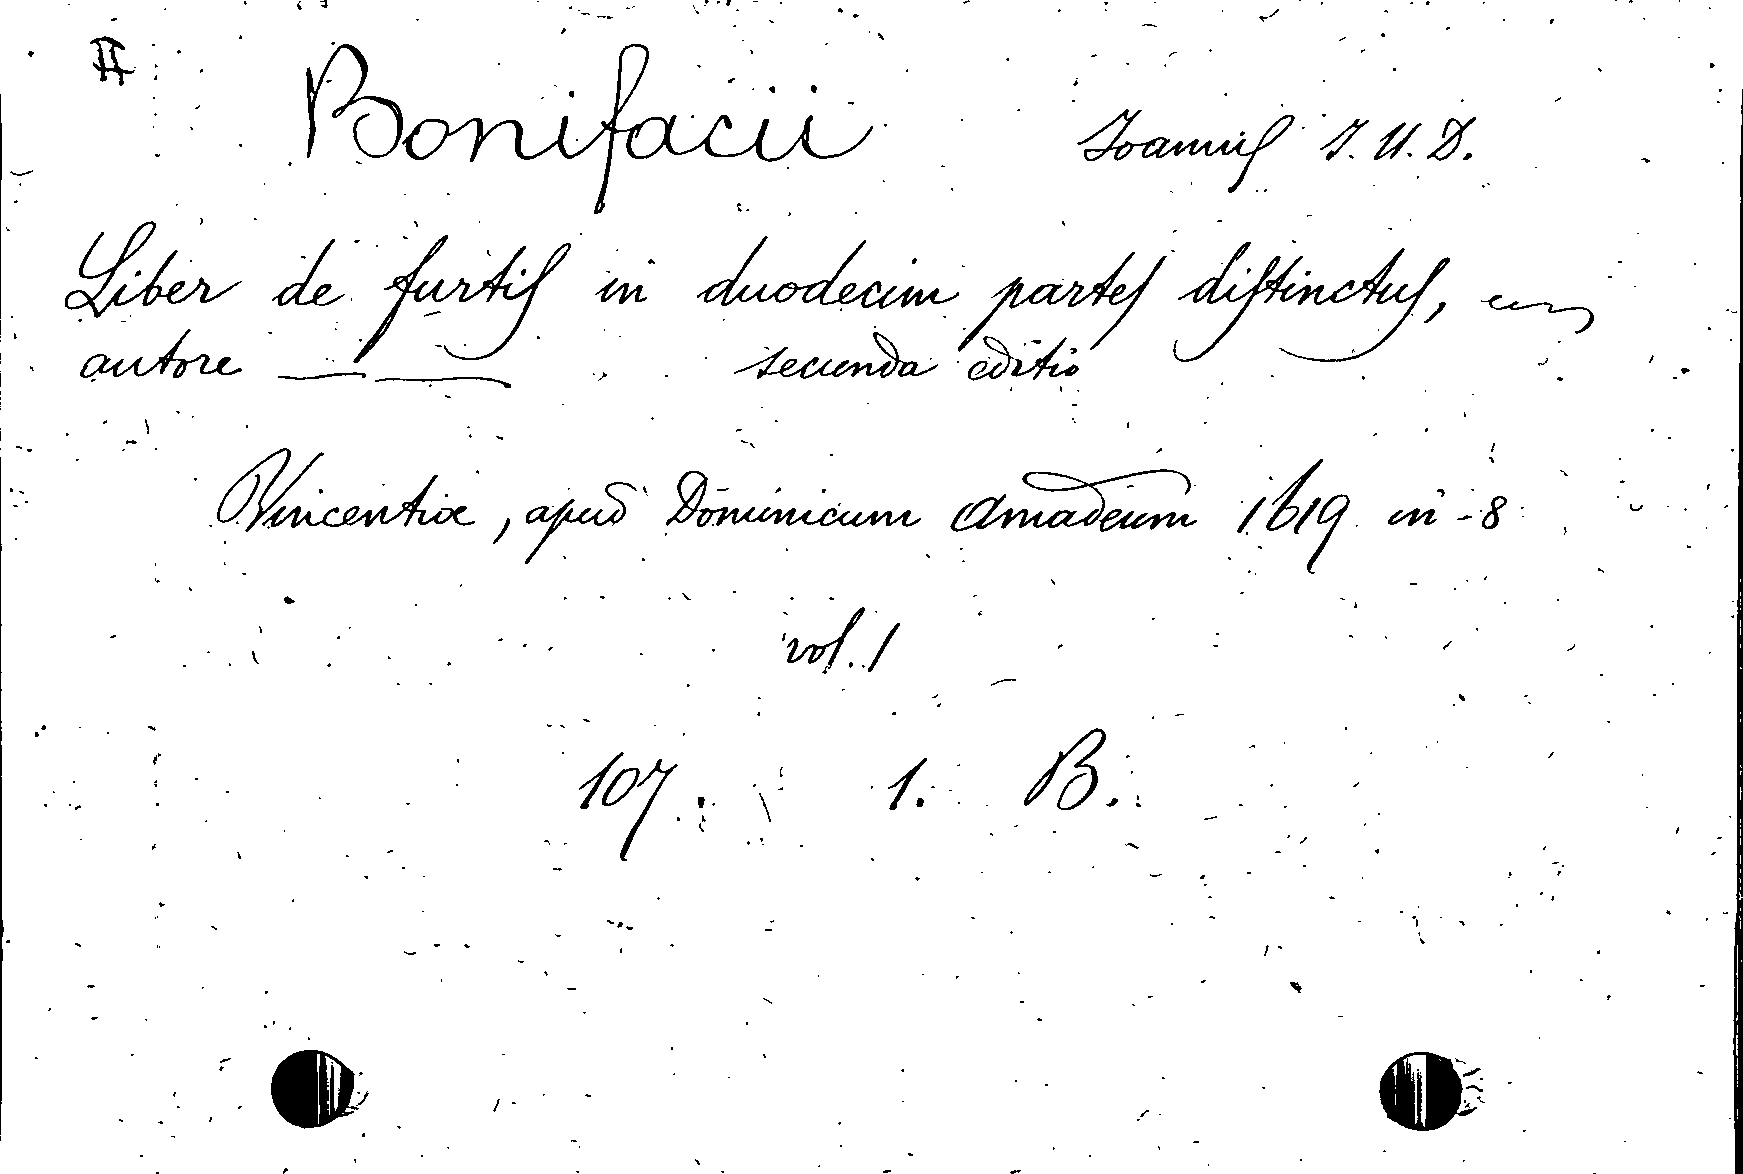 Bonifacii Joannis J. U. D.
Liber de furtis in duodecim partes distinctus,
autore — — secunda editio
Vincentiæ, apud Dominicum Amadeum 1619 in-8
vol. 1
107. 1. B.